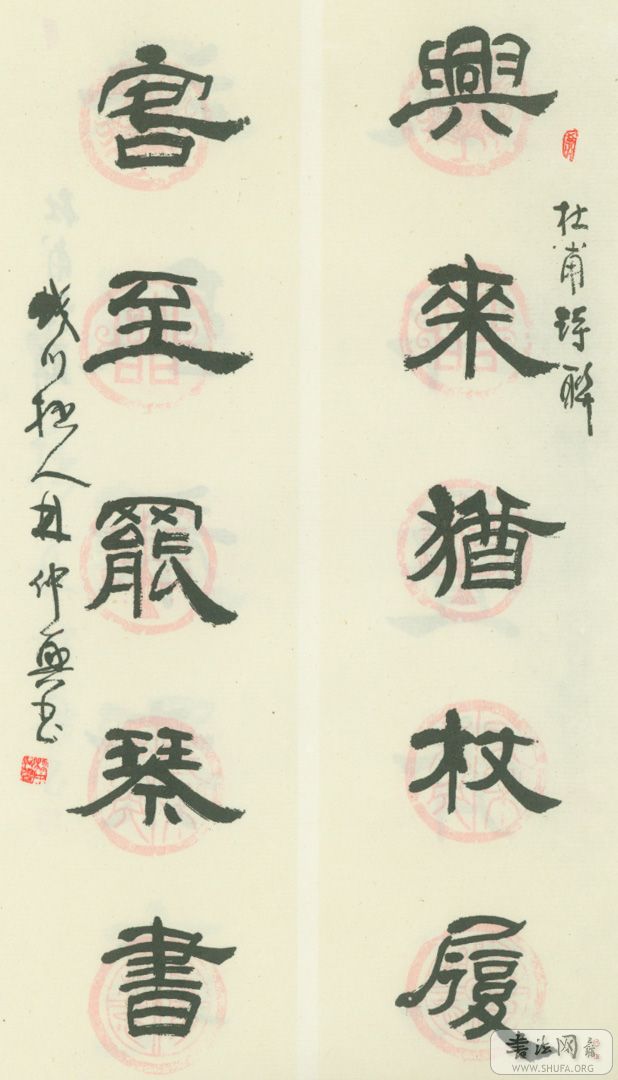 杜甫詩聯
興來猶杖履
客至罷琴書
人林仲興书
書法网
WWW.SHUFA.ORG